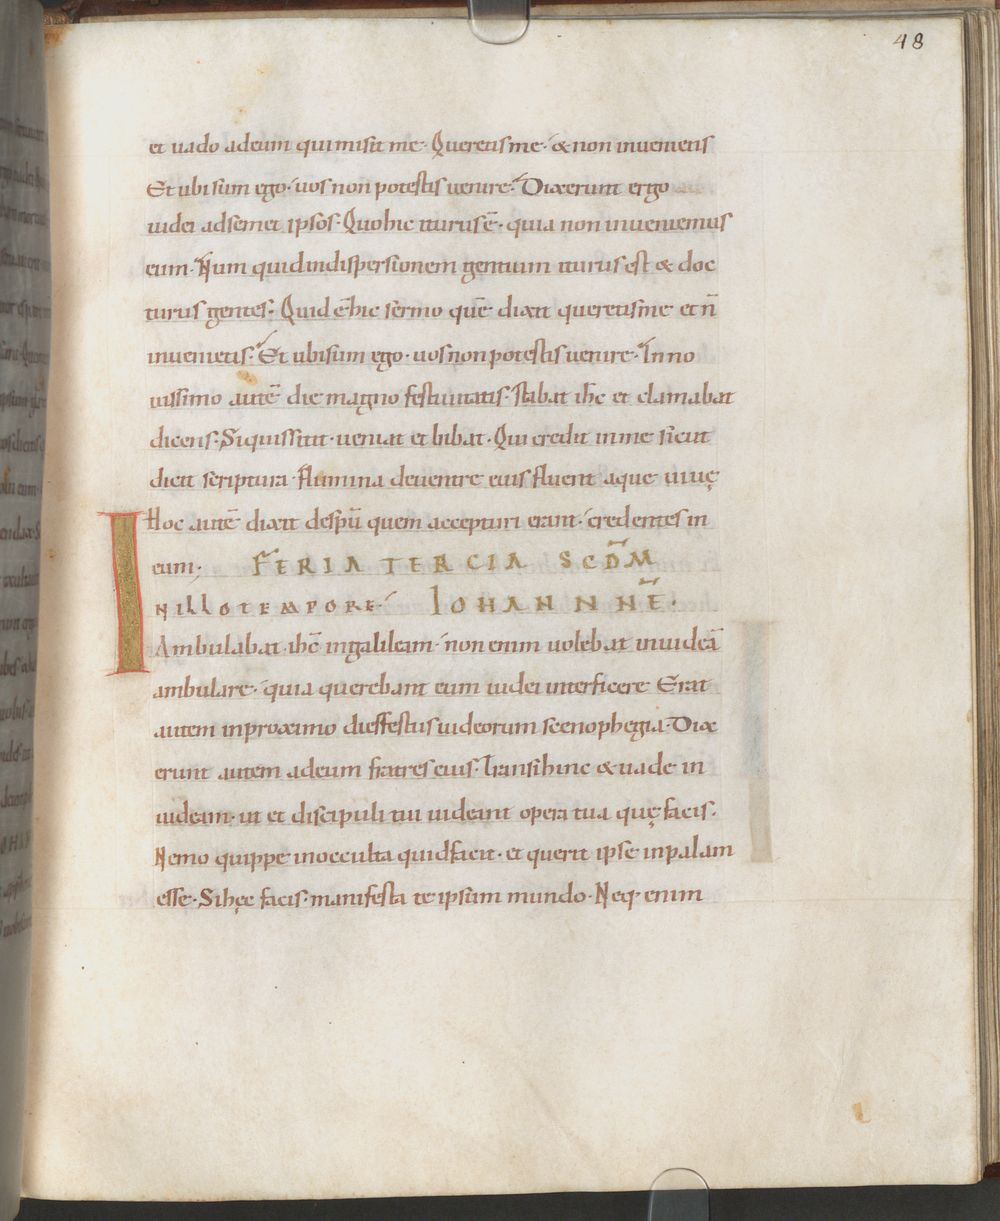 48
et uado adeum quimisit me· Queretisme· & non inuenietis
Et ubi sum ego· uos non potestis uenire· Dixerunt ergo
iudei adsemet ipsos· Quohic iturus ē· quia non inueniemus
eum· Num quidindispersionem gentium iturus est & doc
turus gentes· Quid ē hic sermo quē dixit queretisme et n̄
inuenietis· Et ubisum ego· uosnonpotestis uenire· Inno
uissimo autē die magno festiuitatis· stabat ihc et clamabat
dicens· Siquissitit· ueniat et bibat· Qui credit inme sicut
dicit scriptura· flumina deuentre eius fluent aque uiuę
Hoc autē dixit despū quem accepturi erant· credentes in
eum·
FERIA TERCIA SCDM̄
INILLOTEMPORE· IOHANNNĒ·
Ambulabat ihc̄ ingalileam· non enim uolebat iniudeā
ambulare· quia querebant eum iudei interficere Erat
autem inproximo diesfestus iudeorum scenophegia· Dix
erunt autem adeum fratres eius· Transihinc & uade in
iudeam· ut et discipuli tui uideant opera tua quę facis·
Nemo quippe inocculta quidfacit· et querit ipse inpalam
esse· Sihęc facis· manifesta te ipsum mundo· Neq· enim